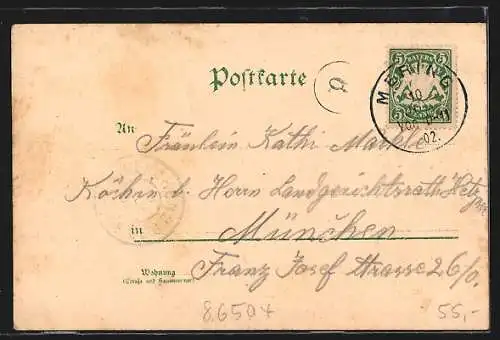 Postkarte
BAYERN
5 5
5 5
MERING
02.
An Fräulein Kathi
Köchin b. Herrn Landgerichtsrath
München
Wohnung
(Straße und Hausnummer)
Franz Josef Strasse 26/0.
8650x
55,-